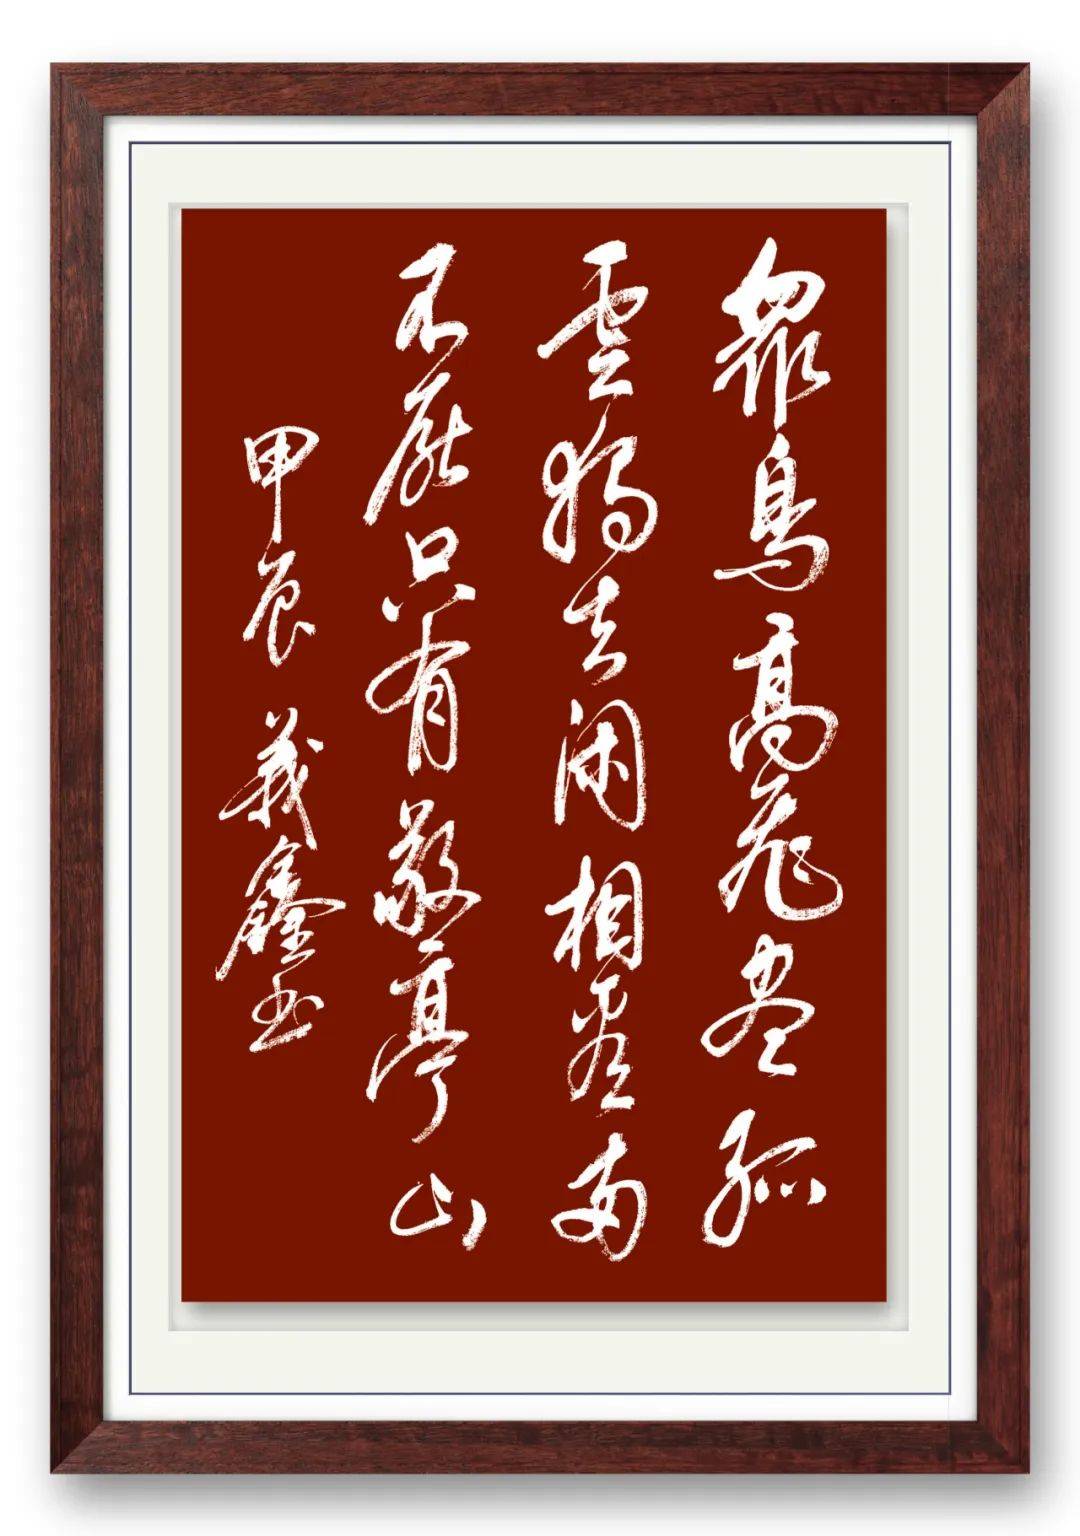 眾鳥高飛尽孤
雲獨去闲相看两
不厭只有敬亭山
甲辰 義鑫书